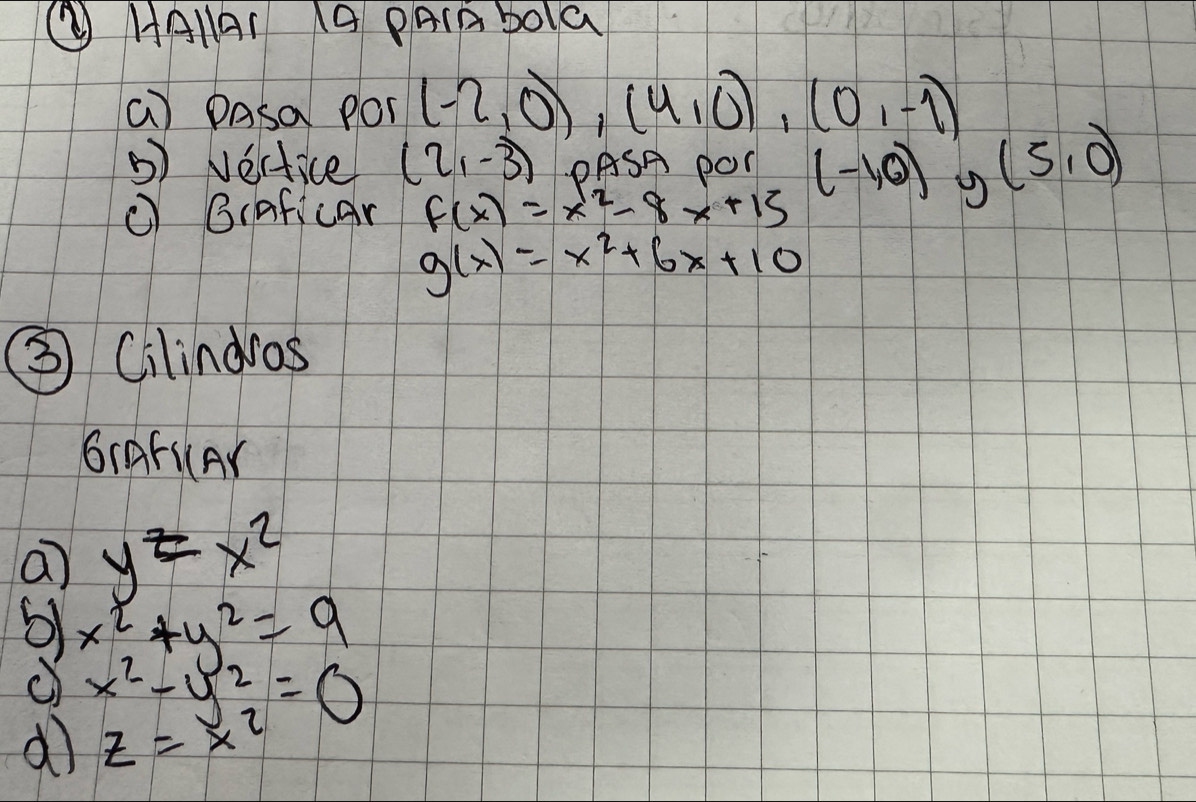 ② Hallar la parábola
a) pasa por (-2,0), (4,0), (0,-1)
b) vértice (2,-3) pasa por (-1,0) y (5,0)
c) Graficar f(x) = x² - 8x + 15
g(x) = x² + 6x + 10
③ Cilindros
Graficar
a) y = x²
b) x² + y² = 9
c) x² - y² = 0
d) z = x²